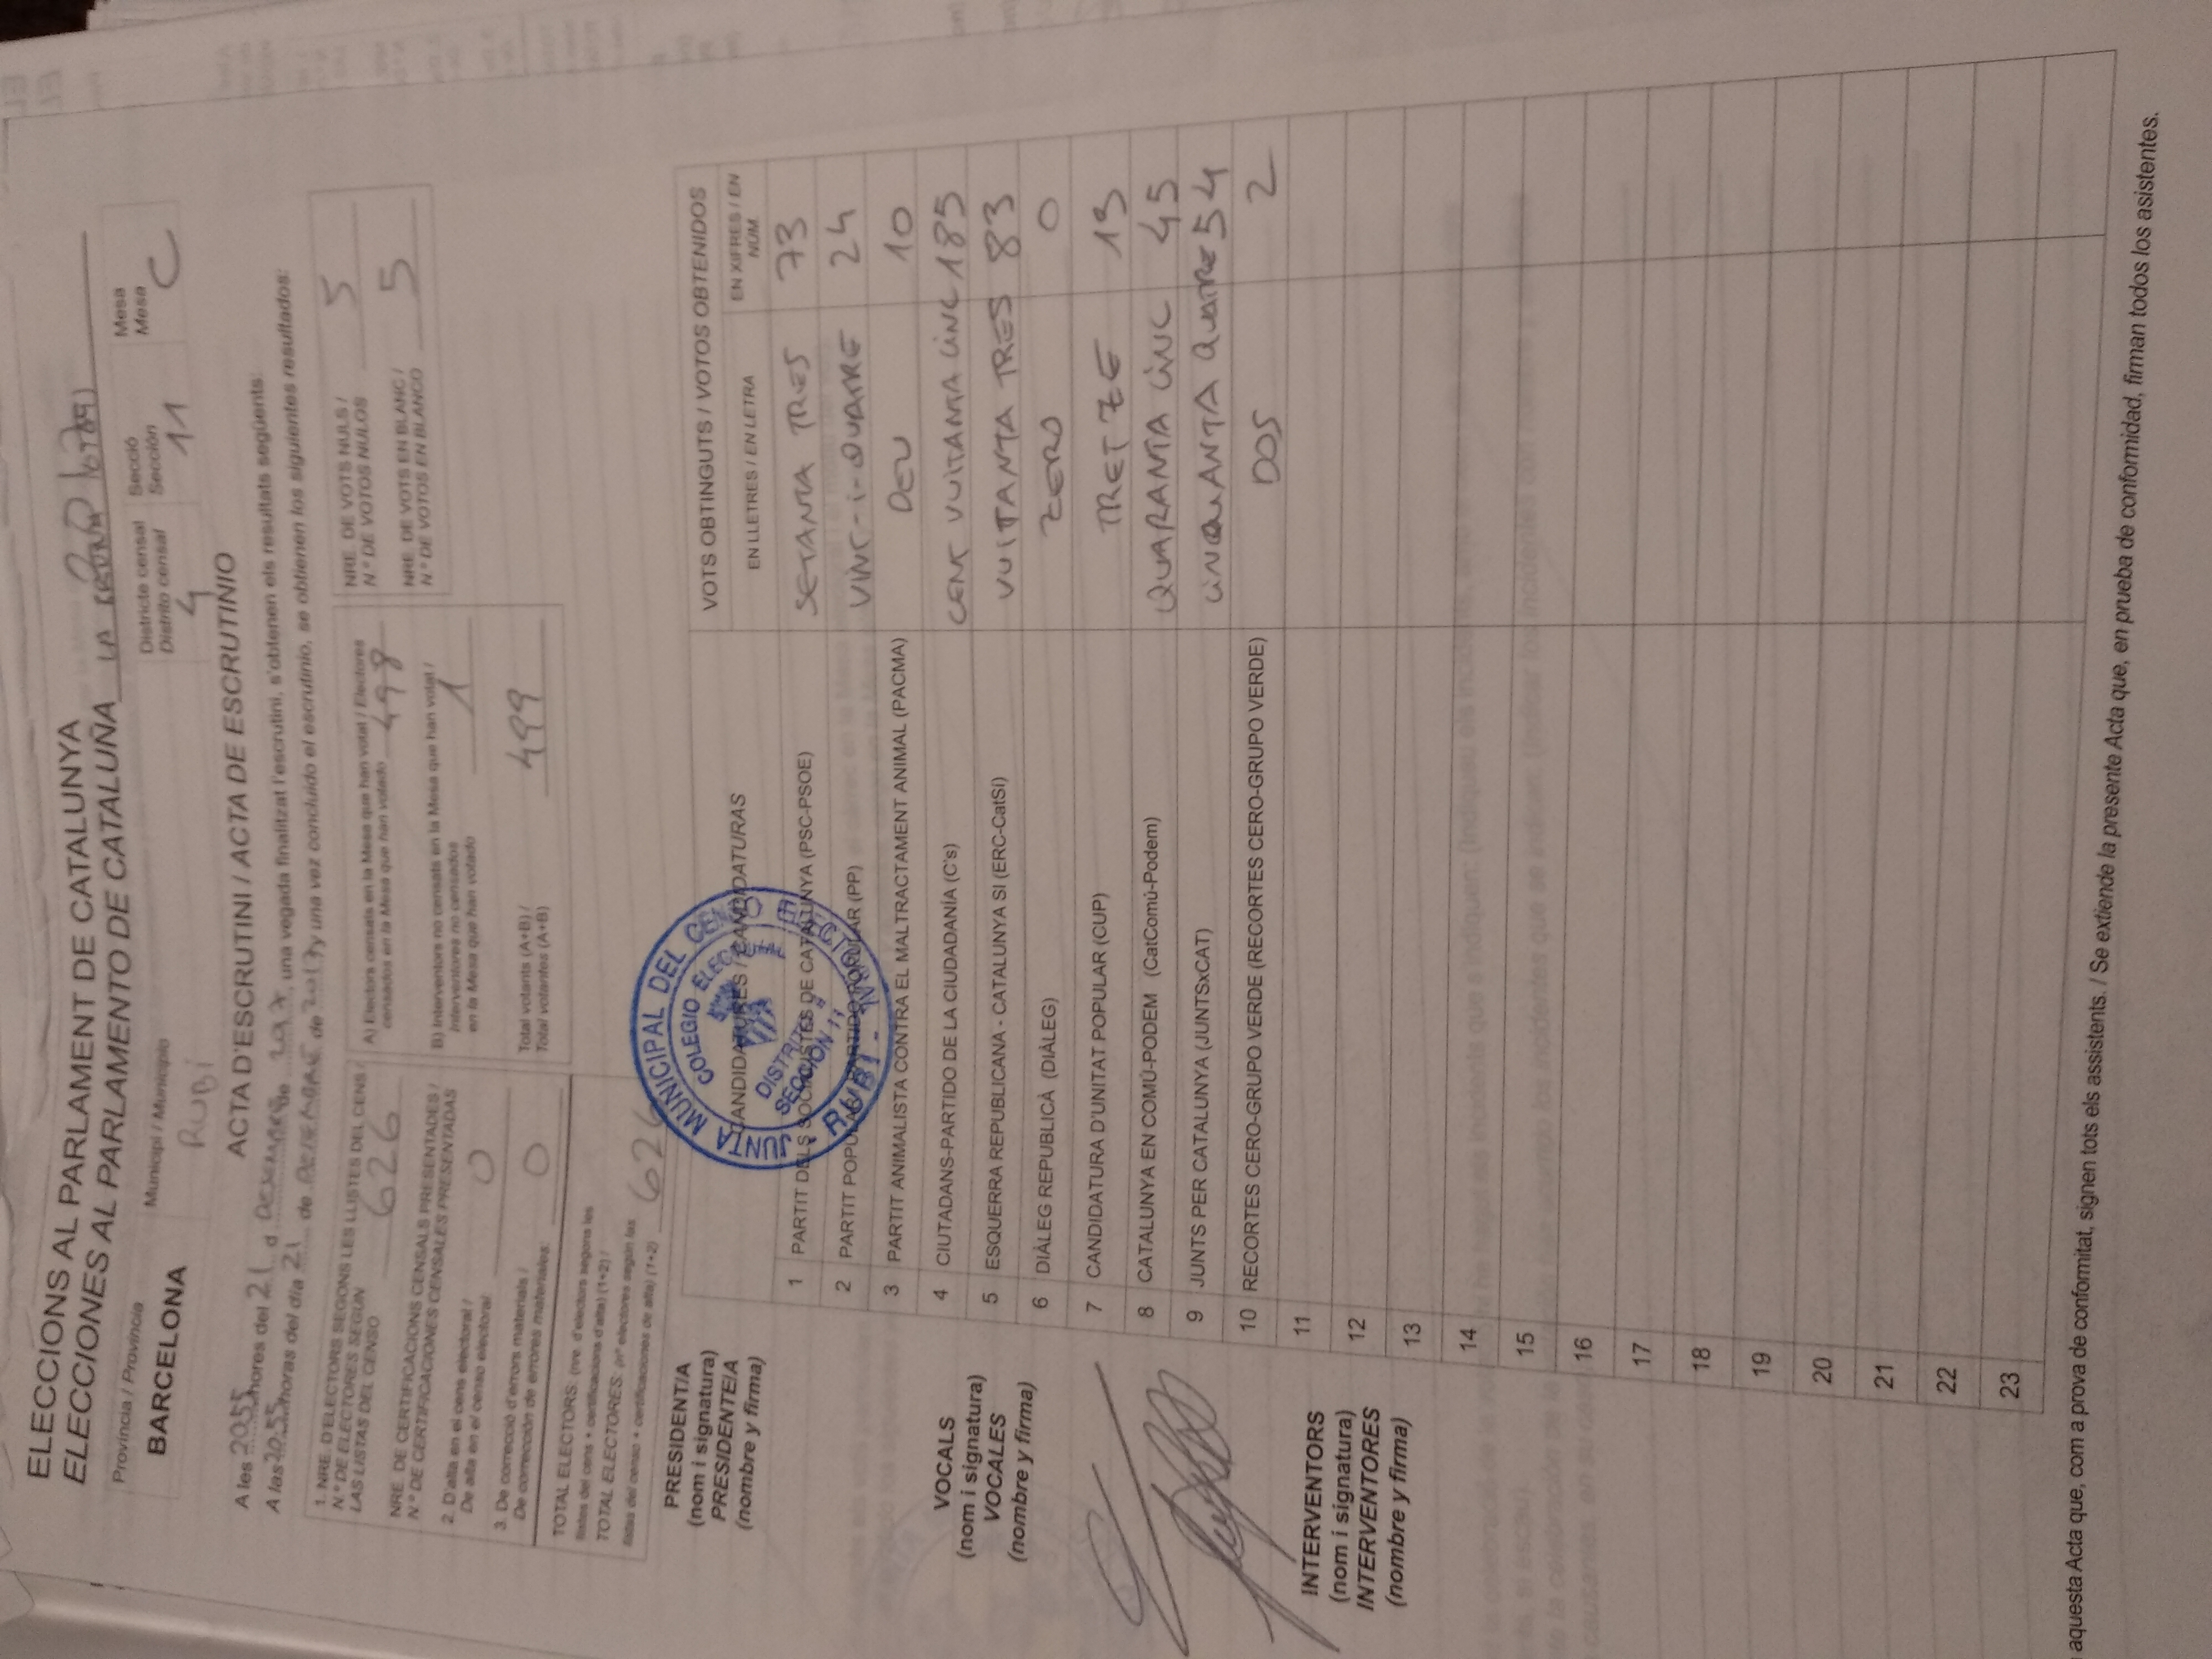 ELECCIONS AL PARLAMENT DE CATALUNYA
ELECCIONES AL PARLAMENTO DE CATALUÑA LA
Província / Provincia
BARCELONA
Municipi / Municipio
RUBÍ
Districte censal
Distrito censal
4
Secció
Sección
11
Mesa
Mesa
C
ACTA D'ESCRUTINI / ACTA DE ESCRUTINIO
A les 20:55 hores del 21 d DESEMBRE de 2017, una vegada finalitzat l'escrutini, s'obtenen els resultats següents:
A las 20:55 horas del día 21 de de 2017 y una vez concluido el escrutinio, se obtienen los siguientes resultados:
1. NRE. D'ELECTORS SEGONS LES LLISTES DEL CENS /
N.º DE ELECTORES SEGÚN
LAS LISTAS DEL CENSO 626
NRE. DE CERTIFICACIONS CENSALS PRESENTADES /
N.º DE CERTIFICACIONES CENSALES PRESENTADAS
2. D'alta en el cens electoral /
De alta en el censo electoral: 0
3. De correcció d'errors materials /
De corrección de errores materiales: 0
TOTAL ELECTORS: (nre. d'electors segons les
llistes del cens + certificacions d'alta) (1+2) /
TOTAL ELECTORES: (nº electores según las
listas del censo + certificaciones de alta) (1+2) 626
A) Electors censats en la Mesa que han votat / Electores
censados en la Mesa que han votado 498
B) Interventors no censats en la Mesa que han votat /
Interventores no censados
en la Mesa que han votado 1
Total votants (A+B) /
Total votantes (A+B) 499
NRE. DE VOTS NULS /
N.º DE VOTOS NULOS 5
NRE. DE VOTS EN BLANC /
N.º DE VOTOS EN BLANCO 5
JUNTA MUNICIPAL DEL CENSO ELECTORAL - RUBI -
COLEGIO ELECTORAL
DISTRITO 4
SECCION 11
PRESIDENT/A
(nom i signatura)
PRESIDENTE/A
(nombre y firma)
CANDIDATURES / CANDIDATURAS
VOTS OBTINGUTS / VOTOS OBTENIDOS
EN LLETRES / EN LETRA
EN XIFRES / EN
NÚM.
1 PARTIT DELS SOCIALISTES DE CATALUNYA (PSC-PSOE) SETANTA TRES 73
2 PARTIT POPULAR / PARTIDO POPULAR (PP) VINC-I-QUATRE 24
3 PARTIT ANIMALISTA CONTRA EL MALTRACTAMENT ANIMAL (PACMA) DEU 10
4 CIUTADANS-PARTIDO DE LA CIUDADANÍA (C's) CENT VUITANTA CINC 185
5 ESQUERRA REPUBLICANA - CATALUNYA SI (ERC-CatSí) VUITANTA TRES 83
6 DIÀLEG REPUBLICÀ (DIÀLEG) ZERO 0
7 CANDIDATURA D'UNITAT POPULAR (CUP) TRETZE 13
8 CATALUNYA EN COMÚ-PODEM (CatComú-Podem) QUARANTA CINC 45
9 JUNTS PER CATALUNYA (JUNTSxCAT) CINQUANTA QUATRE 54
10 RECORTES CERO-GRUPO VERDE (RECORTES CERO-GRUPO VERDE) DOS 2
11
12
13
14
15
16
17
18
19
20
21
22
23
VOCALS
(nom i signatura)
VOCALES
(nombre y firma)
INTERVENTORS
(nom i signatura)
INTERVENTORES
(nombre y firma)
aquesta Acta que, com a prova de conformitat, signen tots els assistents. / Se extiende la presente Acta que, en prueba de conformidad, firman todos los asistentes.